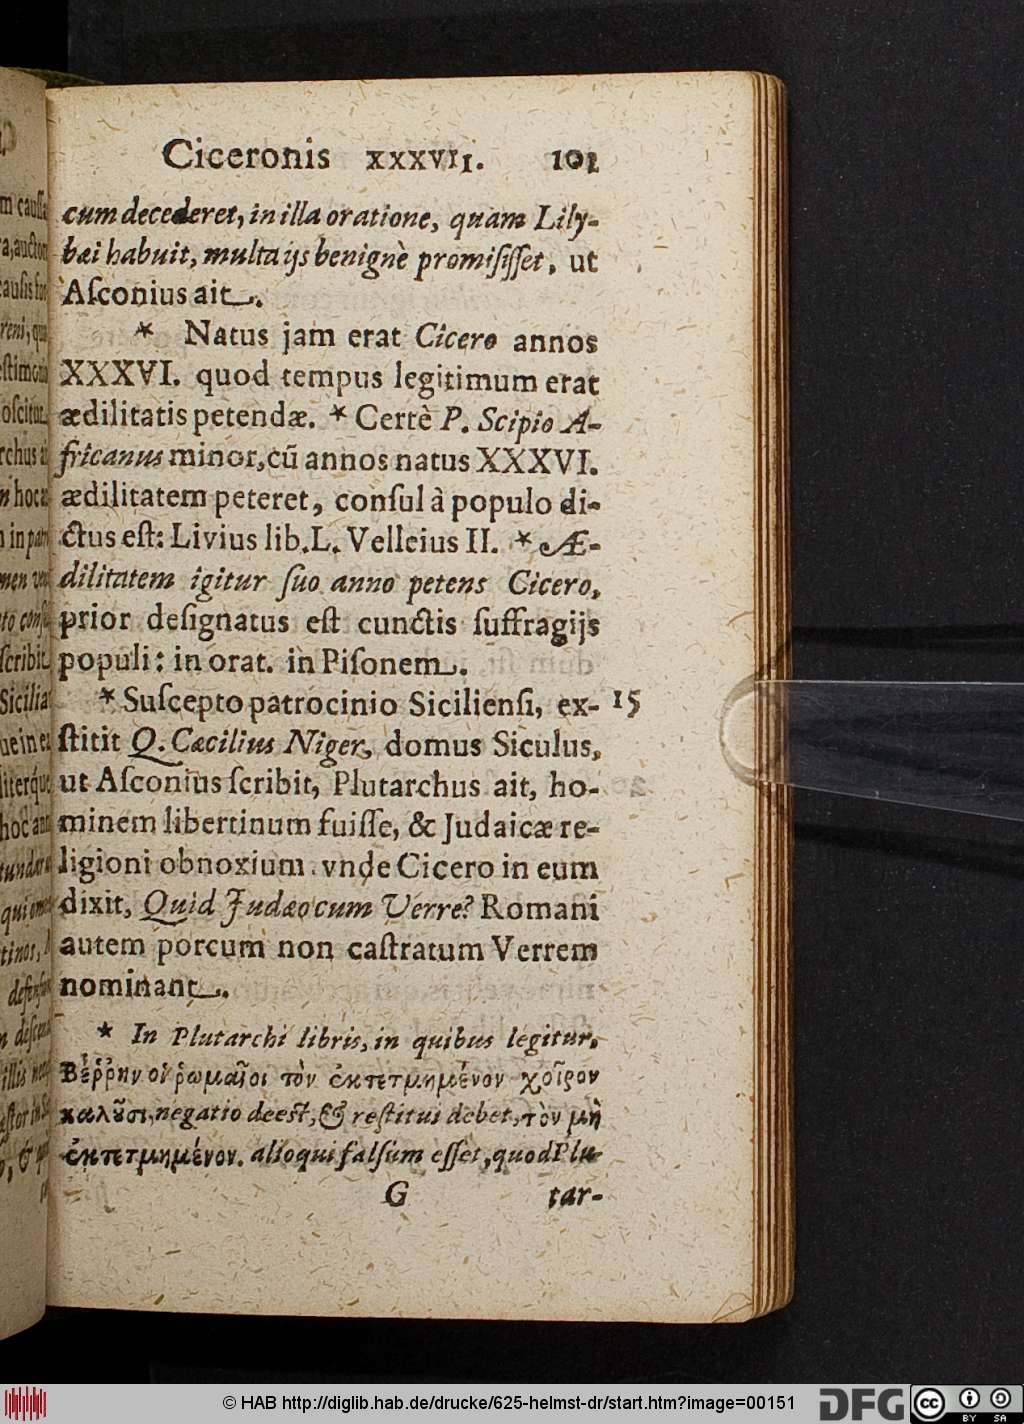 Ciceronis XXXVII. 101
cum decederet, in illa oratione, quam Lily-
bæi habuit, multa ijs benignè promiſiſſet, ut
Aſconius ait.
* Natus jam erat Cicero annos
XXXVI. quod tempus legitimum erat
ædilitatis petendæ. * Certè P. Scipio A-
fricanus minor, cū annos natus XXXVI.
ædilitatem peteret, conſul à populo di-
ctus eſt: Livius lib. L. Velleius II. * Æ-
dilitatem igitur ſuo anno petens Cicero,
prior deſignatus eſt cunctis ſuffragijs
populi: in orat. in Piſonem.
* Suſcepto patrocinio Sicilienſi, ex- 15
ſtitit Q. Cæcilius Niger, domus Siculus,
ut Aſconius ſcribit, Plutarchus ait, ho-
minem libertinum fuiſſe, & Judaicæ re-
ligioni obnoxium. vnde Cicero in eum
dixit, Quid Judæo cum Verre? Romani
autem porcum non caſtratum Verrem
nominant.
* In Plutarchi libris, in quibus legitur,
Βέῤῥην οἱ ῥωμαῖοι τὸν ἐκτετμημένον χοῖρον
καλοῦσι, negatio deest, & reſtitui debet, τὸν μὴ
ἐκτετμημένον. alioqui falſum eſſet, quod Plu-
G tar-
© HAB http://diglib.hab.de/drucke/625-helmst-dr/start.htm?image=00151
DFG
cc
BY SA